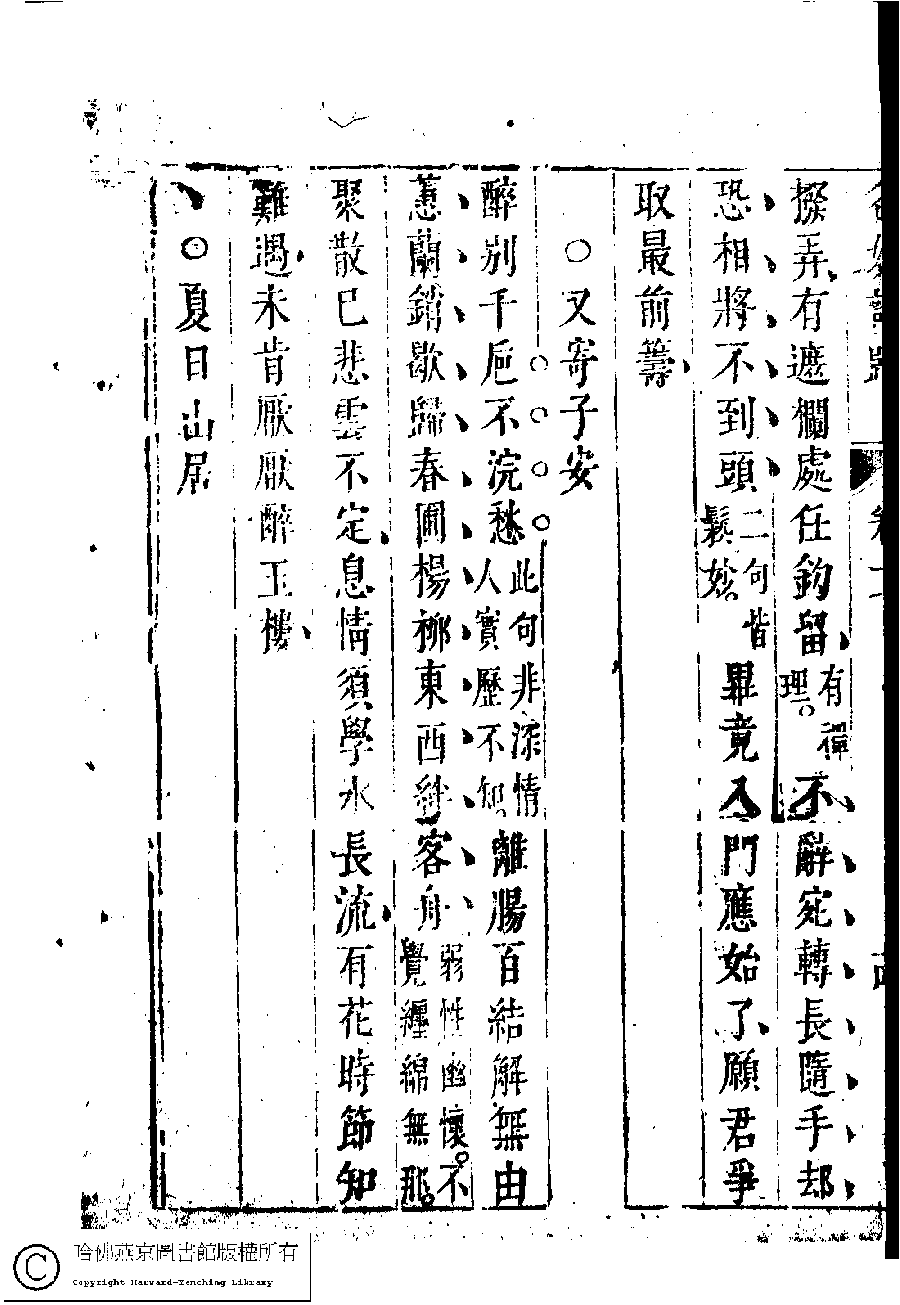 撥弄有遮欄處任鈎留有禪理。不辭宛轉長隨手却
恐相將不到頭二句皆鬆妙。畢竟入門應始了願君爭
取最前籌
○又寄子安
醉別千巵不浣愁此句非深情人實歷不知離膓百結解無由
蕙蘭銷歇歸春圃楊栁東西絆客舟弱性幽懷。不覺纏綿無那。
聚散已悲雲不定息情須學水長流有花時節知
難遇未肯厭厭醉玉樓
○夏日山居
哈佛燕京圖書館版權所有
Copyright Harvard-Yenching Library